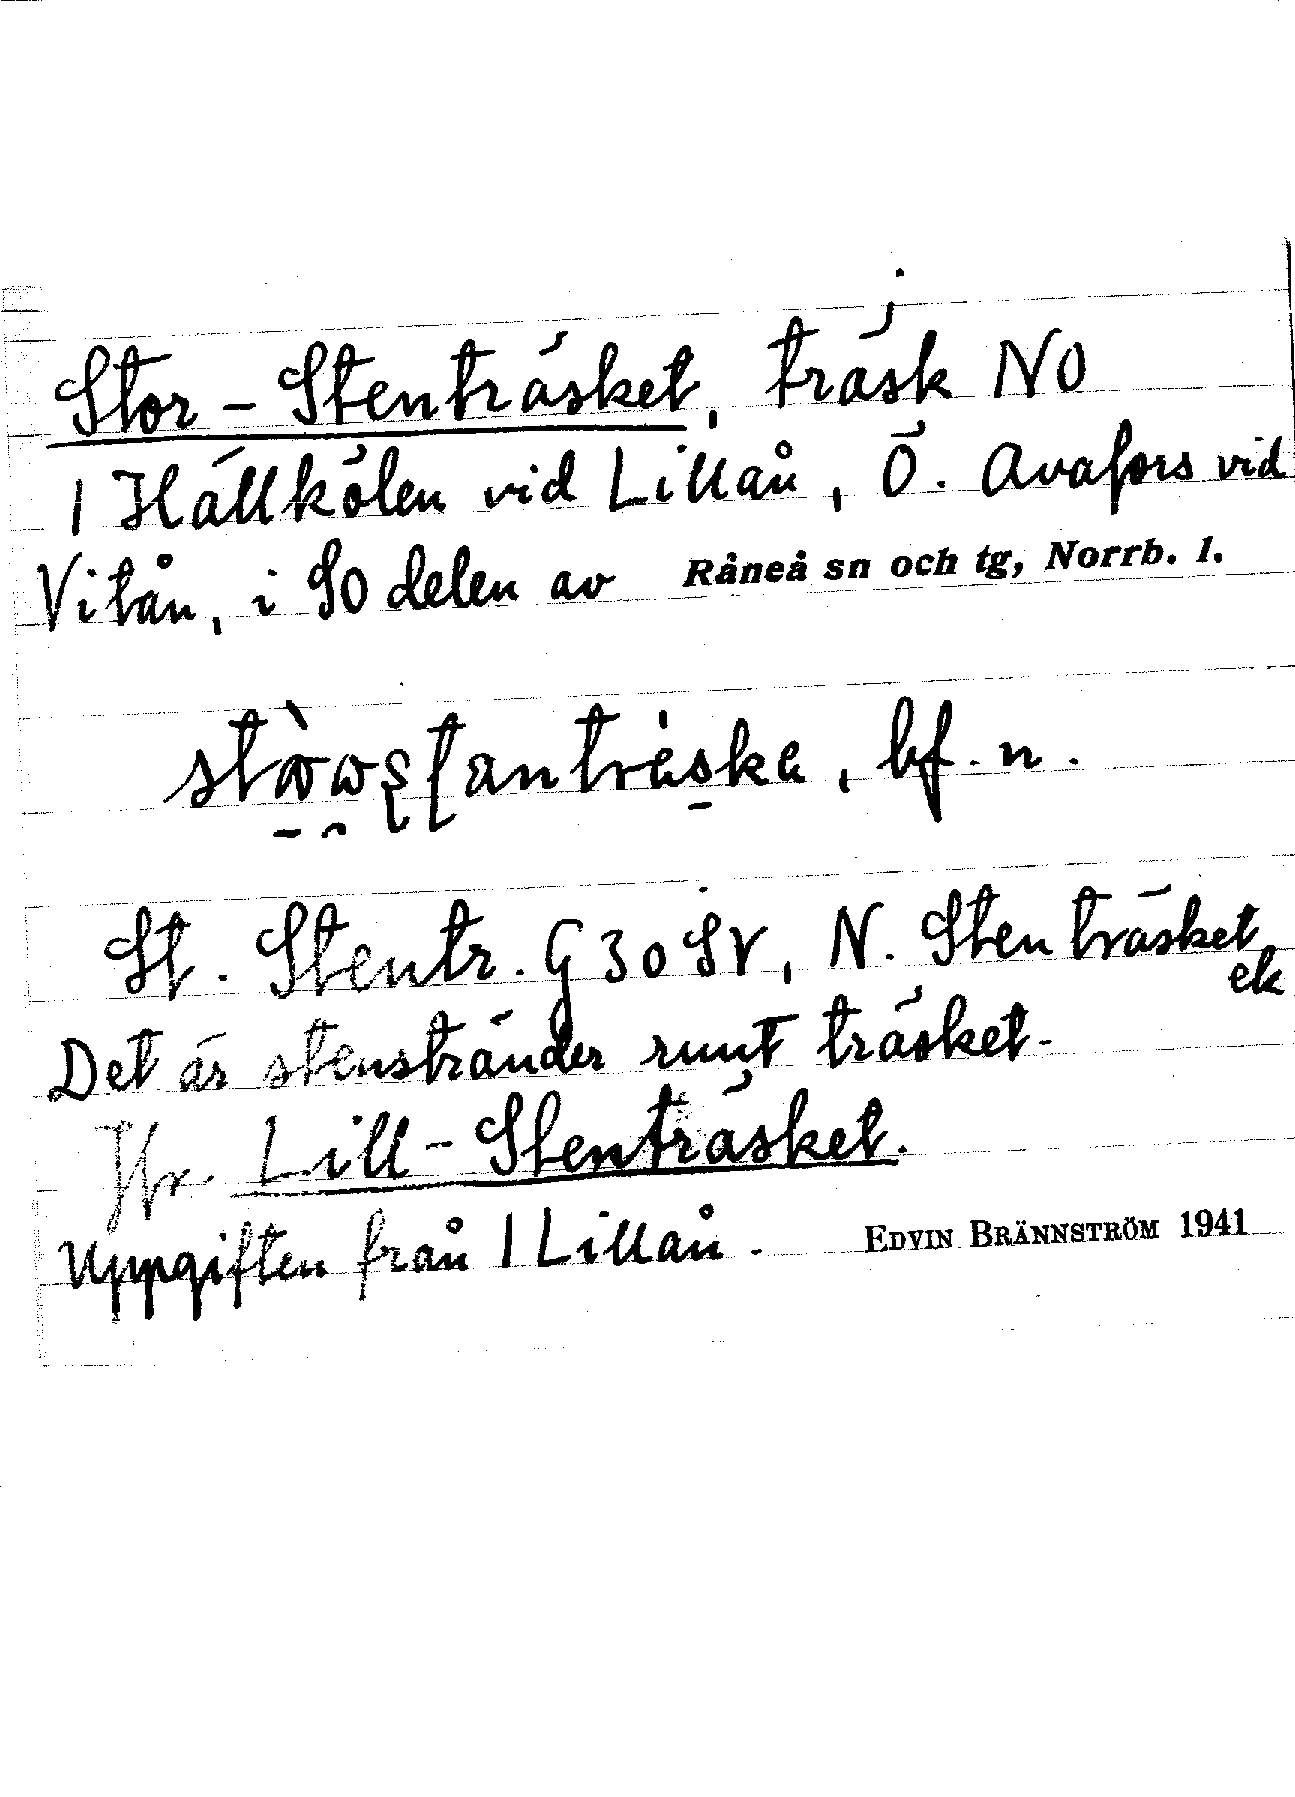 Stor-Stenträsket, träsk NO
1 Hällkölen vid Lillån, Ö. Avafors vid
Vitån, i SO delen av Råneå sn och tg, Norrb. l.
bf. n.
St. Stentr. G 30 SV, N. Stenträsket
ek
Det är stenstränder runt träsket.
Jfr. Lill-Stenträsket.
Uppgiften från 1 Lillån. EDVIN BRÄNNSTRÖM 1941